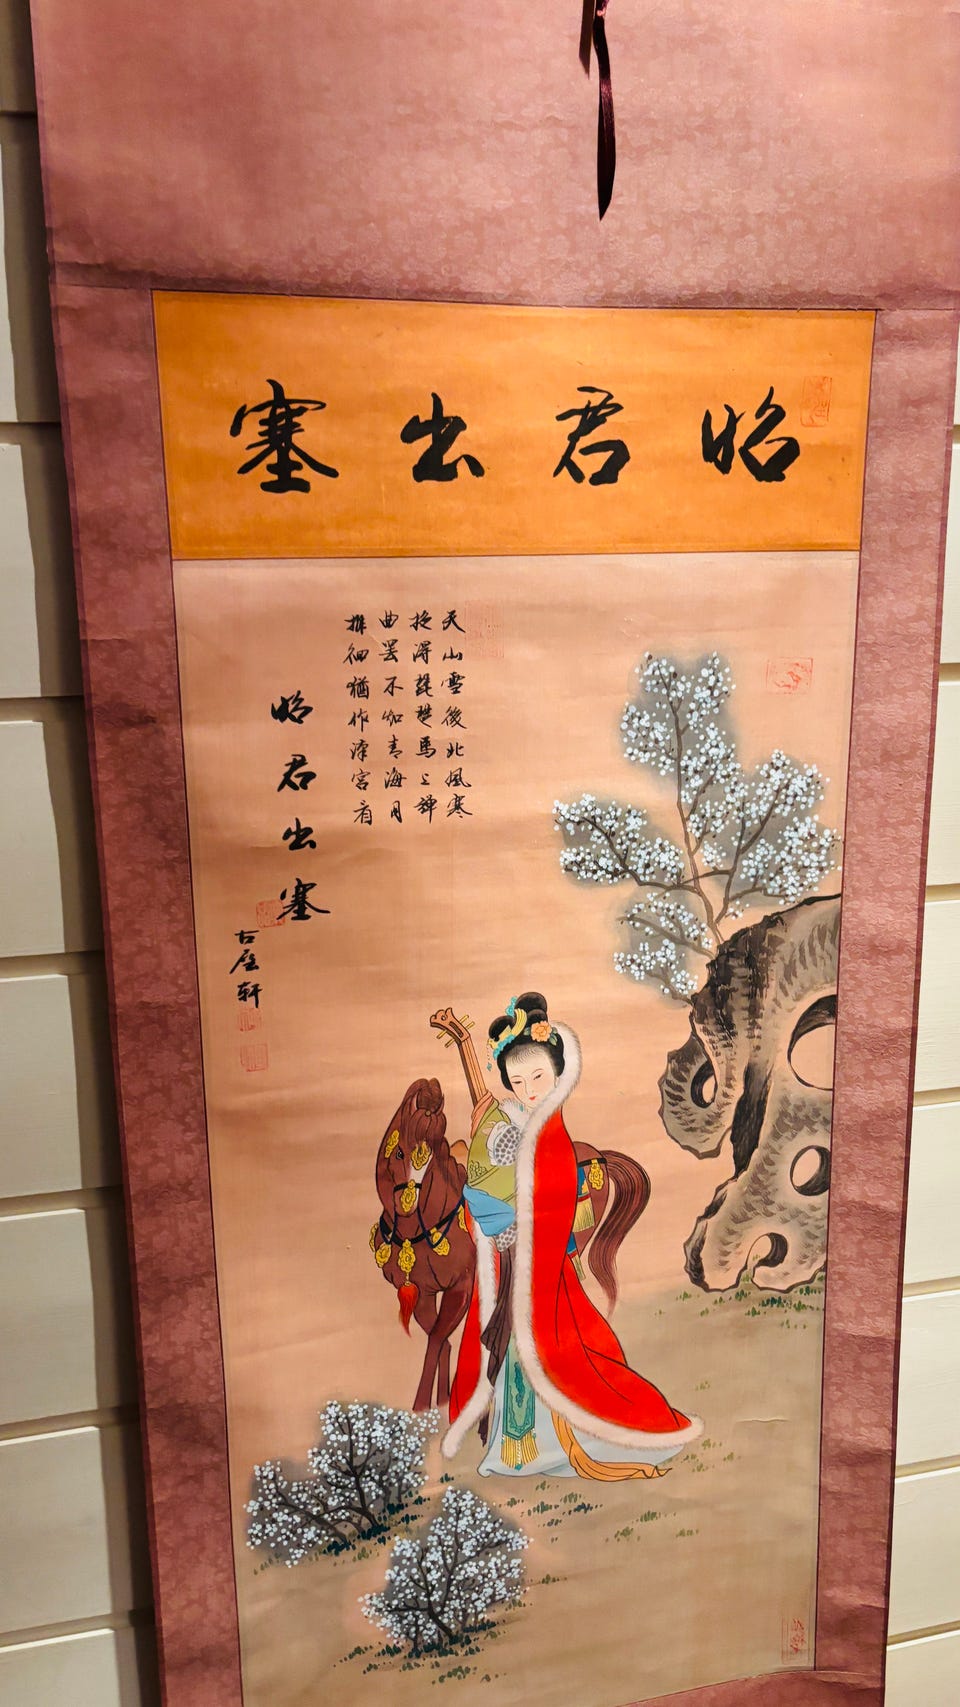 昭君出塞
天山雪後北風寒
抱得琵琶馬上彈
曲罷不知青海月
徘徊猶作漢宮看
昭君出塞